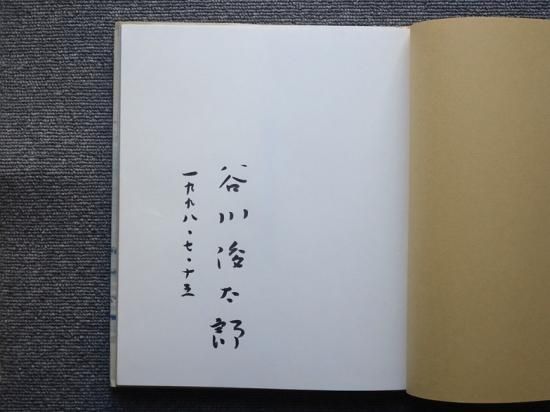 谷川俊太郎
一九九八・七・十五